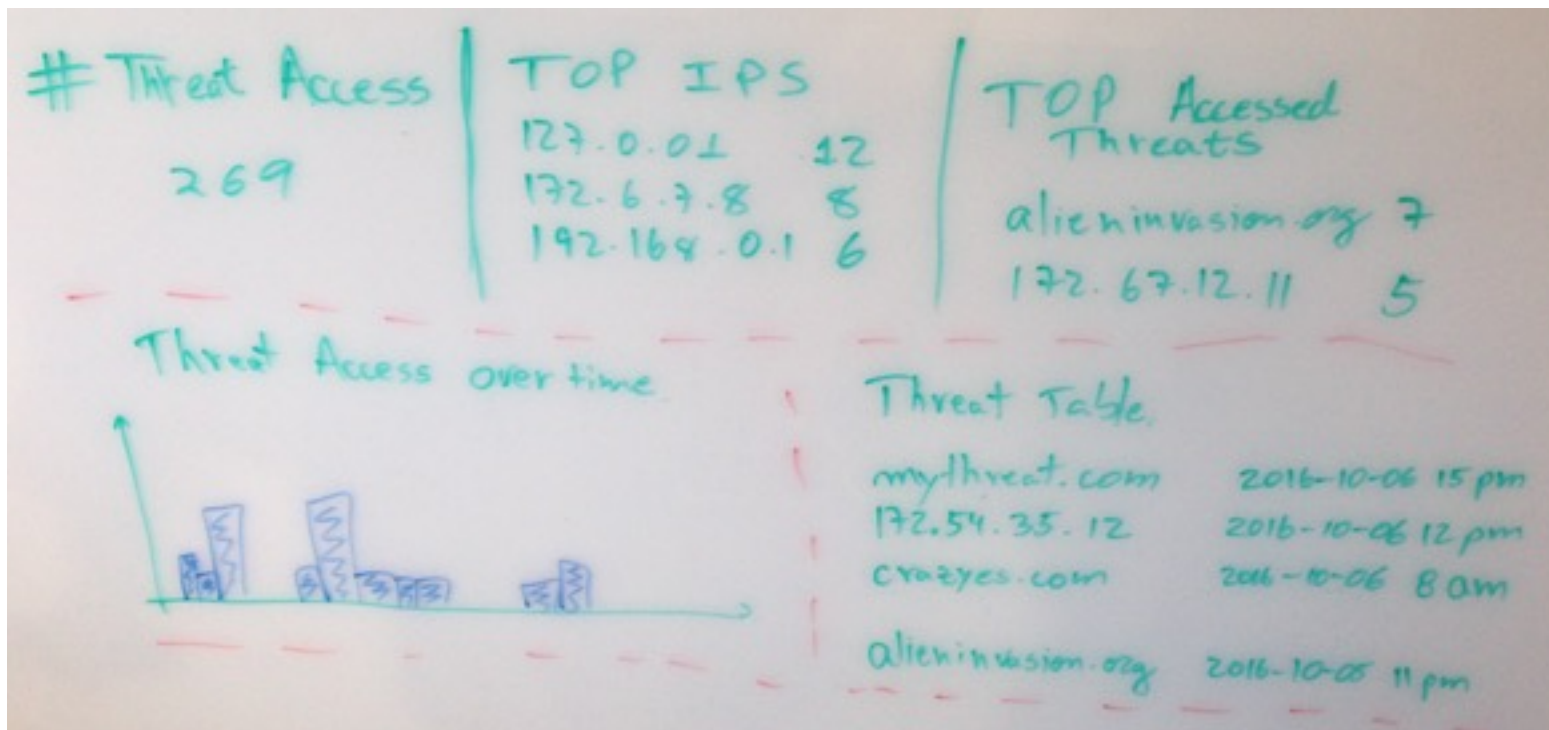 # Threat Access
269
TOP IPS
127.0.01 12
172.6.7.8 8
192.168.0.1 6
TOP Accessed
Threats
alieninvasion.org 7
172.67.12.11 5
Threat Access over time
Threat Table
mythreat.com 2016-10-06 15 pm
172.54.35.12 2016-10-06 12 pm
crazyes.com 2016-10-06 8 am
alieninvasion.org 2016-10-05 11 pm